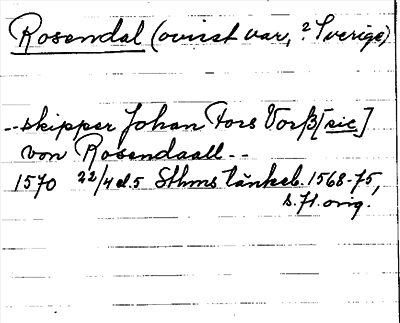 Rosendal (ovisst var, ? Sverige)
--skipper Johan Fors Vorß [sic]
von Rosendaall--
1570 22/4 el. 5 Sthms tänkeb. 1568-75,
s. 71. orig.